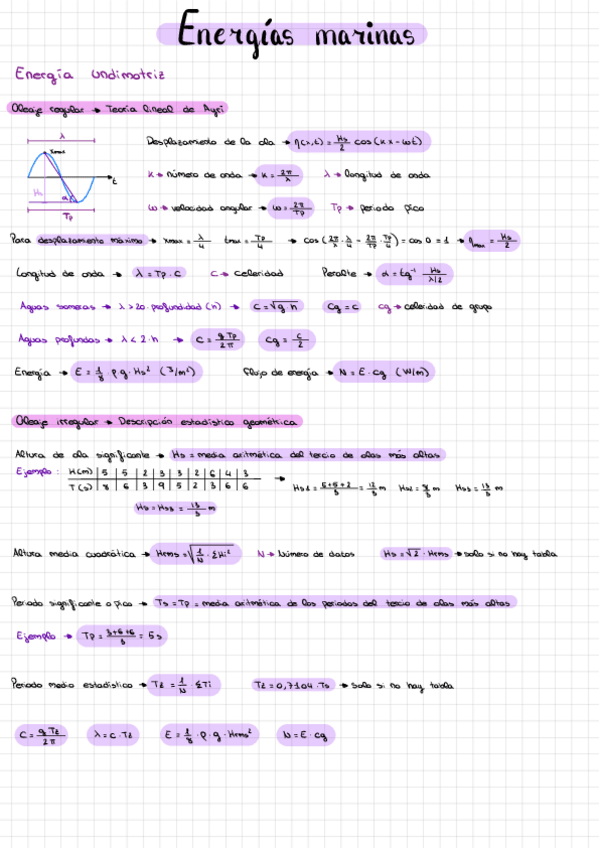 Energías marinas
Energía undimotriz
Oleaje regular → Teoría lineal de Ayri
λ
xmax
t
Hs
α
Tp
Desplazamiento de la ola → η(x,t) = Hs/2 cos(kx - ωt)
k → número de onda → k = 2π/λ λ → longitud de onda
ω → velocidad angular → ω = 2π/Tp Tp → periodo pico
Para desplazamiento máximo → xmax = λ/4 tmax = Tp/4 → cos(2π/λ · λ/4 - 2π/Tp · Tp/4) = cos 0 = 1 → ηmax = Hs/2
Longitud de onda → λ = Tp · c c → celeridad Peralte → α = tg⁻¹ Hs/λ/2
Aguas someras → λ > 20 · profundidad (h) → c = √g · h cg = c cg → celeridad de grupo
Aguas profundas → λ < 2 · h → c = g Tp/2π cg = c/2
Energía → E = 1/8 · ρ · g · Hs² (J/m²) Flujo de energía → N = E · cg (W/m)
Oleaje irregular → Descripción estadístico geométrica
Altura de ola significante → Hs = media aritmética del tercio de olas más altas
Ejemplo: H(m) | 5 | 5 | 2 | 3 | 3 | 2 | 6 | 4 | 3
T(s) | 8 | 6 | 3 | 9 | 5 | 2 | 3 | 6 | 6
→ Hs1 = 5+5+2/3 = 12/3 m Hs2 = 8/3 m Hs3 = 13/3 m
Hs = Hs3 = 13/3 m
Altura media cuadrática → Hrms = √1/N · ΣHi² N → Número de datos Hs = √2 · Hrms → solo si no hay tabla
Periodo significante o pico → Ts = Tp = media aritmética de los periodos del tercio de olas más altas
Ejemplo → Tp = 3+6+6/3 = 5 s
Periodo medio estadístico → Tz = 1/N · ΣTi Tz = 0,7104 · Ts → Solo si no hay tabla
c = g Tz/2π λ = c · Tz E = 1/8 · ρ · g · Hrms² N = E · cg